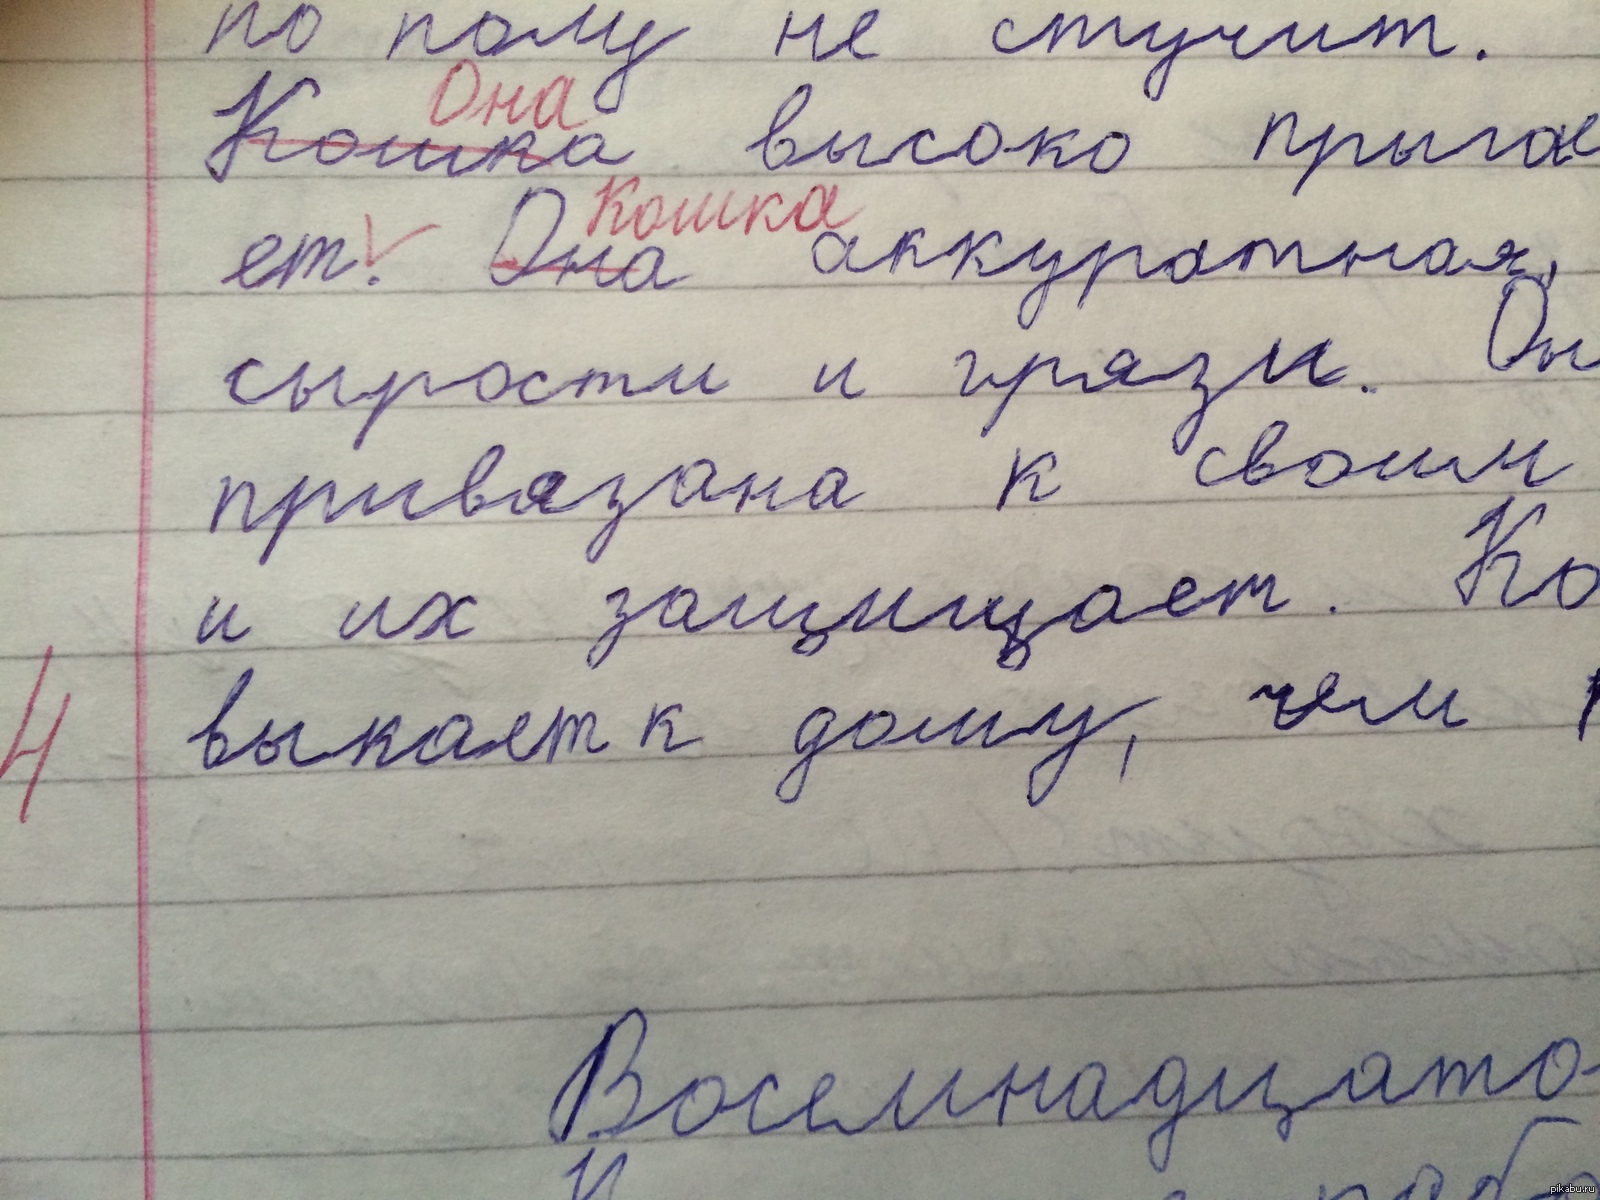 по полу не стучит.
Она
Кошка высоко прыга
Кошка
ет. Она аккуратная,
сырости и грязи. Он
привязана к своим
и их защищает. Ко
4
выкает к дому, чем
Восемнадцато
pikabu.ru